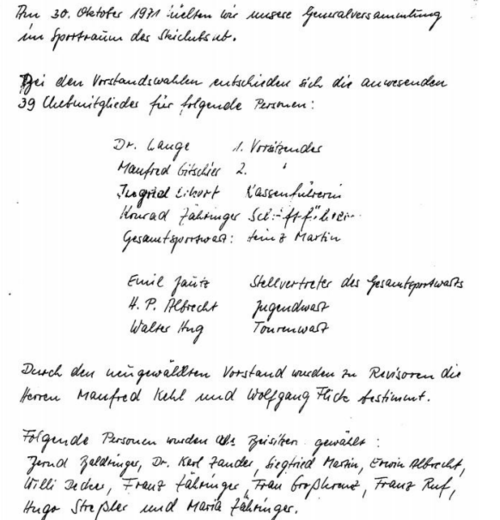 Am 30. Oktober 1971 hielten wir unsere Generalversammlung
im Sportraum des Skiclubs ab.
Bei den Vorstandswahlen entschieden sich die anwesenden
39 Clubmitglieder für folgende Personen:
Dr. Lange 1. Vorsitzender
Manfred Gitschier 2. "
Ingrid Kassenführerin
Konrad Zähringer Schriftführer
Gesamtsportwart: Heinz Martin
Emil Jautz Stellvertreter des Gesamtsportwarts
H. P. Albrecht Jugendwart
Walter Hug Tourenwart
Durch den neugewählten Vorstand wurden zu Revisoren die
Herren Manfred Kehl und Wolfgang Flick bestimmt.
Folgende Personen wurden als Beisitzer gewählt:
Bernd Dr. Karl Zander, Siegfried Martin, Erwin Albrecht,
Willi Decher, Franz Zähringer, Frau Franz Ruf,
Hugo Streßler und Maria Zähringer.